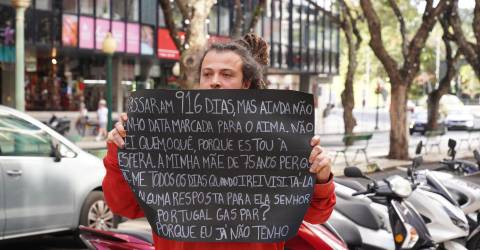 PASSARAM 916 DIAS, MAS AINDA NÃO
TENHO DATA MARCADA PARA O AIMA. NÃO
SEI QUEM OU PORQUE ESTOU À
ESPERA. A MINHA MÃE DE 75 ANOS PERGU
ME TODOS OS DIAS QUANDO IREI VISITÁ-LA
ALGUMA RESPOSTA PARA ELA SENHOR
PORTUGAL GASPAR?
PORQUE EU JÁ NÃO TENHO